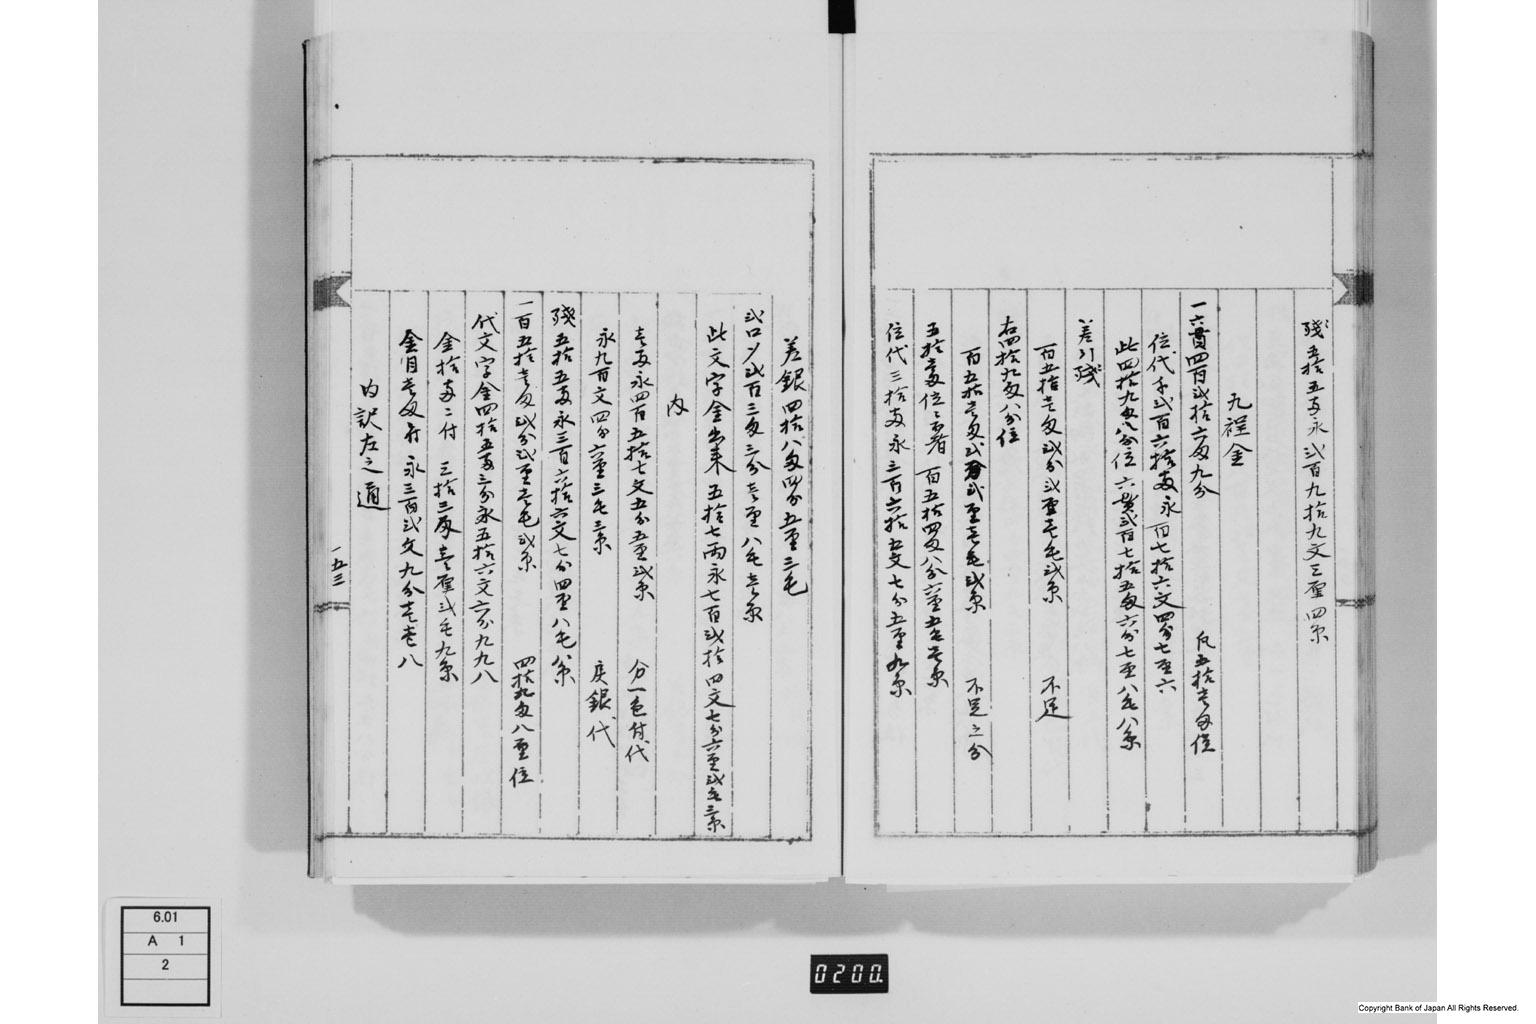 残五拾五両永弐百九拾九文三厘四糸
九程金
一六貫四百弐拾六匁九分 尺五拾壱匁位
位代千弐百六拾両永百七拾六文四分七厘六
此四拾九匁八分位六貫弐百七拾五匁六分七厘八毛八糸
差引残
百五拾壱匁弐分弐厘壱毛弐糸 不足
右四拾九匁八分位
百五拾壱匁弐分弐厘壱毛弐糸 不足之分
五拾壱匁位ニ而者 百五拾四匁八分六厘五毛壱糸
位代三拾両永三百六拾五文七分五厘九糸
差銀四拾八匁四分五厘三毛
弐口〆弐百三匁三分壱厘八毛壱糸
此文字金出来五拾七両永七百弐拾四文七分六厘弐毛三糸
内
壱両永四百五拾七文五分五厘弐糸 分一色付代
永九百文四分六厘三毛三糸 戻銀代
残五拾五両永三百六拾六文七分四厘八毛八糸
一百五拾壱匁弐分弐厘壱毛弐糸 四拾九匁八厘位
代文字金四拾五両三分永五拾六文六分九九八
金拾両ニ付 三拾三匁壱厘弐毛九糸
金目壱匁ニ付 永三百弐文九分壱壱八
内訳左之通
一五三
6.01
A 1
2
0200.
Copyright Bank of Japan All Rights Reserved.